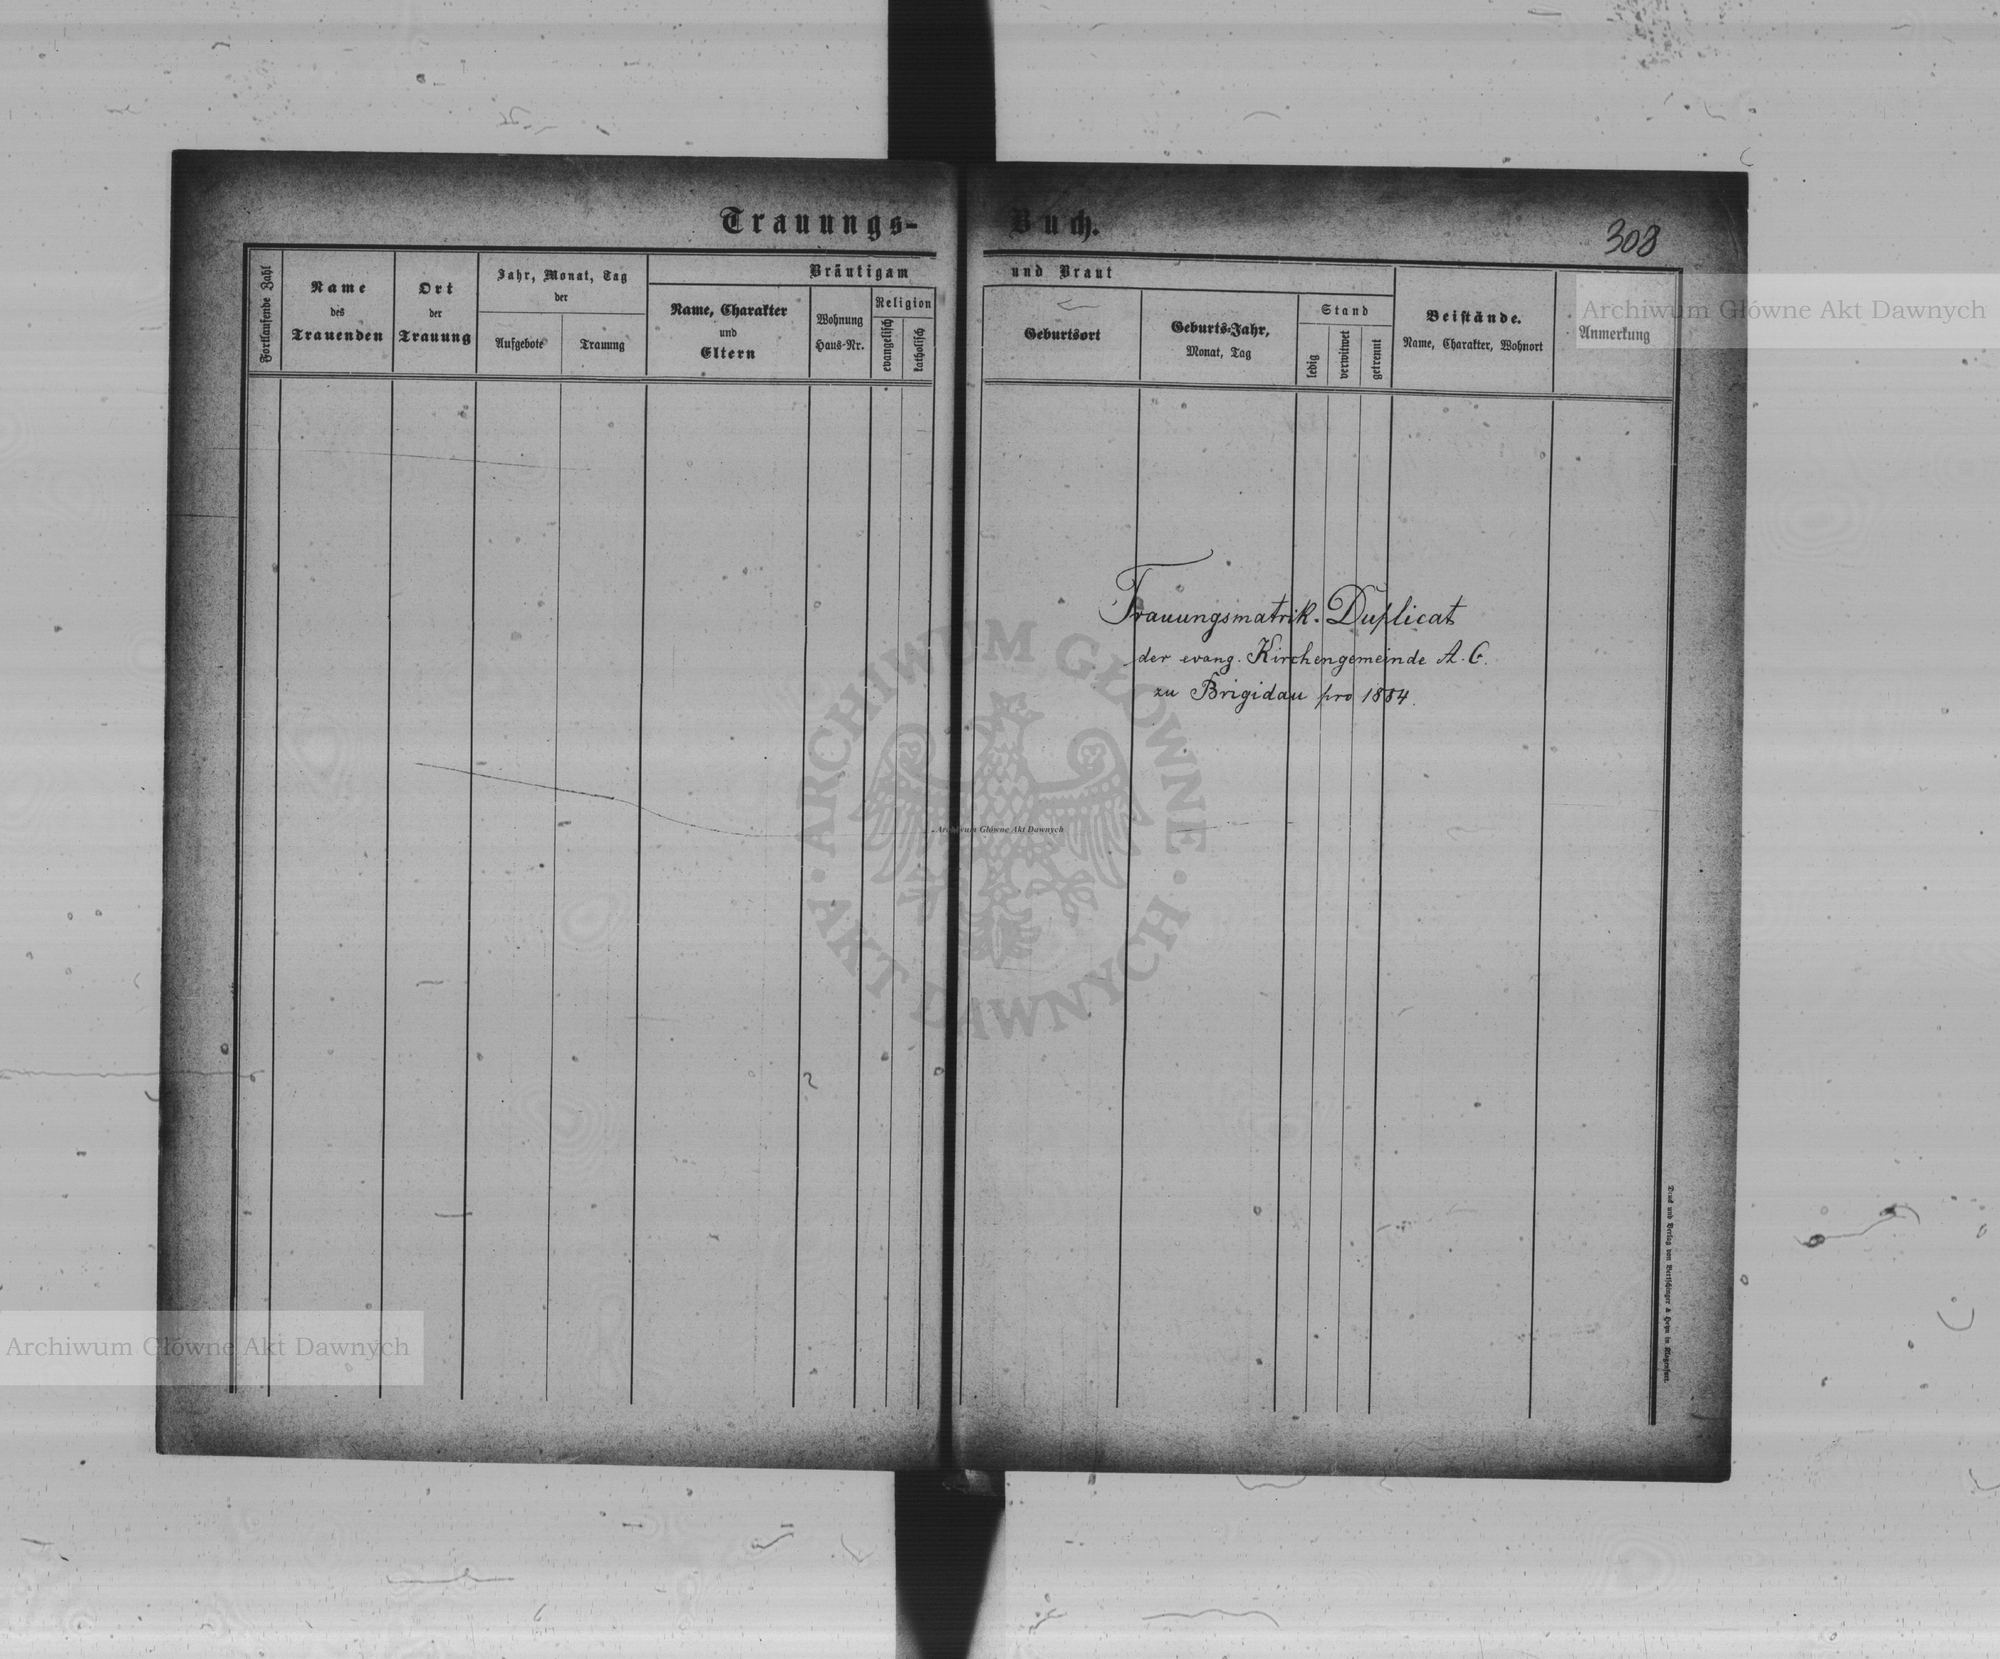 Trauungs- Buch.
308
Fortlaufende Zahl
Name
des
Trauenden
Ort
der
Trauung
Jahr, Monat, Tag
der
Aufgebote
Trauung
Bräutigam und Braut
Name, Charakter
und
Eltern
Wohnung
Haus-Nr.
Religion
evangelisch
katholisch
Geburtsort
Geburts-Jahr,
Monat, Tag
Stand
ledig
verwitwet
getrennt
Beistände.
Name, Charakter, Wohnort
Anmerkung
Archiwum Główne Akt Dawnych
Trauungsmatrik-Duplicat
der evang. Kirchengemeinde A. C.
zu Brigidau pro 1884.
ARCHIWUM GŁÓWNE
AKT DAWNYCH
Archiwum Główne Akt Dawnych
Archiwum Główne Akt Dawnych
Druck und Verlag von Bertschinger & Heyn in Klagenfurt.